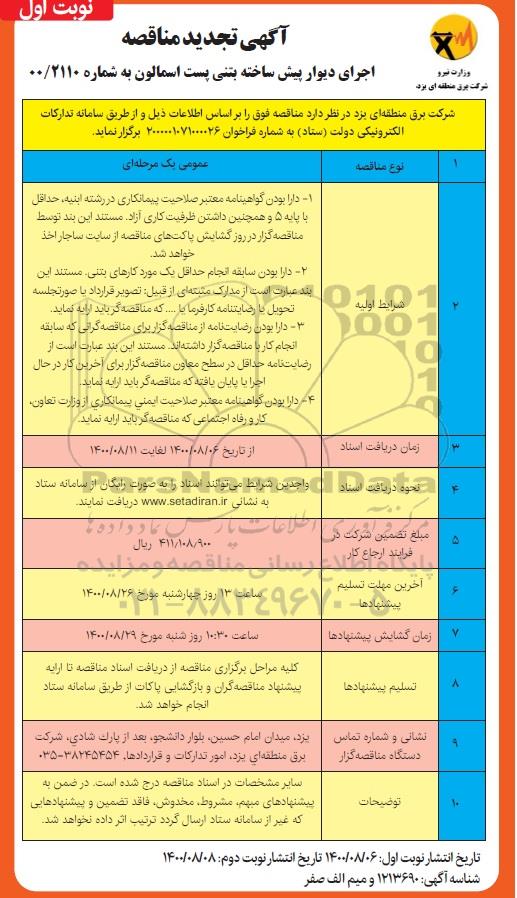 نوبت اول
آگهی تجدید مناقصه
اجرای دیوار پیش ساخته بتنی پست اسمالون به شماره ۰۰/۲۱۱۰
وزارت نیرو
شرکت برق منطقه ای یزد
شرکت برق منطقه‌ای یزد در نظر دارد مناقصه فوق را بر اساس اطلاعات ذیل و از طریق سامانه تدارکات
الکترونیکی دولت (ستاد) به شماره فراخوان ۲۰۰۰۰۰۱۰۷۱۰۰۰۰۲۶ برگزار نماید.
۱
نوع مناقصه
عمومی یک مرحله‌ای
۲
شرایط اولیه
۱- دارا بودن گواهینامه معتبر صلاحیت پیمانکاری در رشته ابنیه، حداقل
با پایه ۵ و همچنین داشتن ظرفیت کاری آزاد. مستند این بند توسط
مناقصه‌گزار در روز گشایش پاکت‌های مناقصه از سایت ساجار اخذ
خواهد شد.
۲- دارا بودن سابقه انجام حداقل یک مورد کارهای بتنی. مستند این
بند عبارت است از مدارک مثبته‌ای از قبیل: تصویر قرارداد یا صورتجلسه
تحویل یا رضایتنامه کارفرما یا .... که مناقصه‌گر باید ارایه نماید.
۳- دارا بودن رضایت‌نامه از مناقصه‌گزار برای مناقصه‌گرانی که سابقه
انجام کار با مناقصه‌گزار داشته‌اند. مستند این بند عبارت است از
رضایت‌نامه حداقل در سطح معاون مناقصه‌گزار برای آخرین کار در حال
اجرا یا پایان یافته که مناقصه‌گر باید ارایه نماید.
۴- دارا بودن گواهینامه معتبر صلاحیت ایمني پیمانکاري از وزارت تعاون،
کار و رفاه اجتماعی که مناقصه‌گر باید ارایه نماید.
۳
زمان دریافت اسناد
از تاریخ ۱۴۰۰/۰۸/۰۶ لغایت ۱۴۰۰/۰۸/۱۱
۴
نحوه دریافت اسناد
واجدین شرایط می‌توانند اسناد را به صورت رایگان از سامانه ستاد
به نشانی www.setadiran.ir دریافت نمایند.
۵
مبلغ تضمین شرکت در
فرایند ارجاع کار
۴۱۱/۱۰۸/۹۰۰ ریال
۶
آخرین مهلت تسلیم
پیشنهادها
ساعت ۱۳ روز چهارشنبه مورخ ۱۴۰۰/۰۸/۲۶
۷
زمان گشایش پیشنهادها
ساعت ۱۰:۳۰ روز شنبه مورخ ۱۴۰۰/۰۸/۲۹
۸
تسلیم پیشنهادها
کلیه مراحل برگزاری مناقصه از دریافت اسناد مناقصه تا ارایه
پیشنهاد مناقصه‌گران و بازگشایی پاکات از طریق سامانه ستاد
انجام خواهد شد.
۹
نشانی و شماره تماس
دستگاه مناقصه‌گزار
یزد، میدان امام حسین، بلوار دانشجو، بعد از پارك شادي، شرکت
برق منطقه‌اي یزد، امور تدارکات و قراردادها، ۳۸۲۴۵۴۵۴-۰۳۵
۱۰
توضیحات
سایر مشخصات در اسناد مناقصه درج شده است. در ضمن به
پیشنهادهای مبهم، مشروط، مخدوش، فاقد تضمین و پیشنهادهایی
که غیر از سامانه ستاد ارسال گردد ترتیب اثر داده نخواهد شد.
ParsNamadData
مرکز فرآوری اطلاعات پارس نماد داده ها
پایگاه اطلاع رسانی مناقصه و مزایده
۰۲۱-۸۸۳۴۹۶۷۰-۵
تاریخ انتشار نوبت اول: ۱۴۰۰/۰۸/۰۶ تاریخ انتشار نوبت دوم: ۱۴۰۰/۰۸/۰۸
شناسه آگهی: ۱۲۱۳۶۹۰ و میم الف صفر